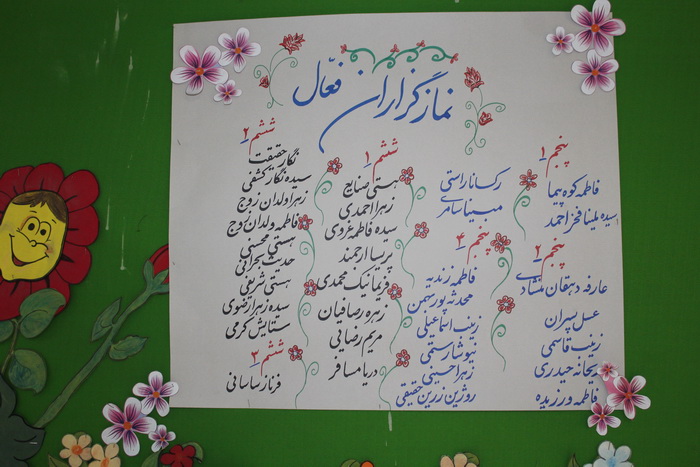 نمازگزاران فعّال
پنجم ۱
فاطمه کوه پیما
سیده ملینا فخر احمد
پنجم ۲
عارفه دهقان منشادی
عسل سیران
زینب قاسمی
ریحانه حیدری
فاطمه ورزیده
رکسانا راستی
مبینا سامری
پنجم ۴
فاطمه زندیه
محدثه پوربهمن
زینب اسماعیلی
نیوشا رستمی
زهرا حسینی
روژین زرین حقیقی
ششم ۱
هستی صنایع
زهرا احمدی
سیده فاطمه غروی
پریسا ارجمند
فریما نیک محمدی
زهره رصافیان
مریم رضایی
دریا مسافر
ششم ۲
نگار حقیقت
سیده نگار کشفی
زهرا ولدان زوج
فاطمه ولدان زوج
هستی محبی
حدیث بحرانی
هستی شریفی
سیده زهرا رضوی
ستایش کرمی
ششم ۳
فرناز ساسانی